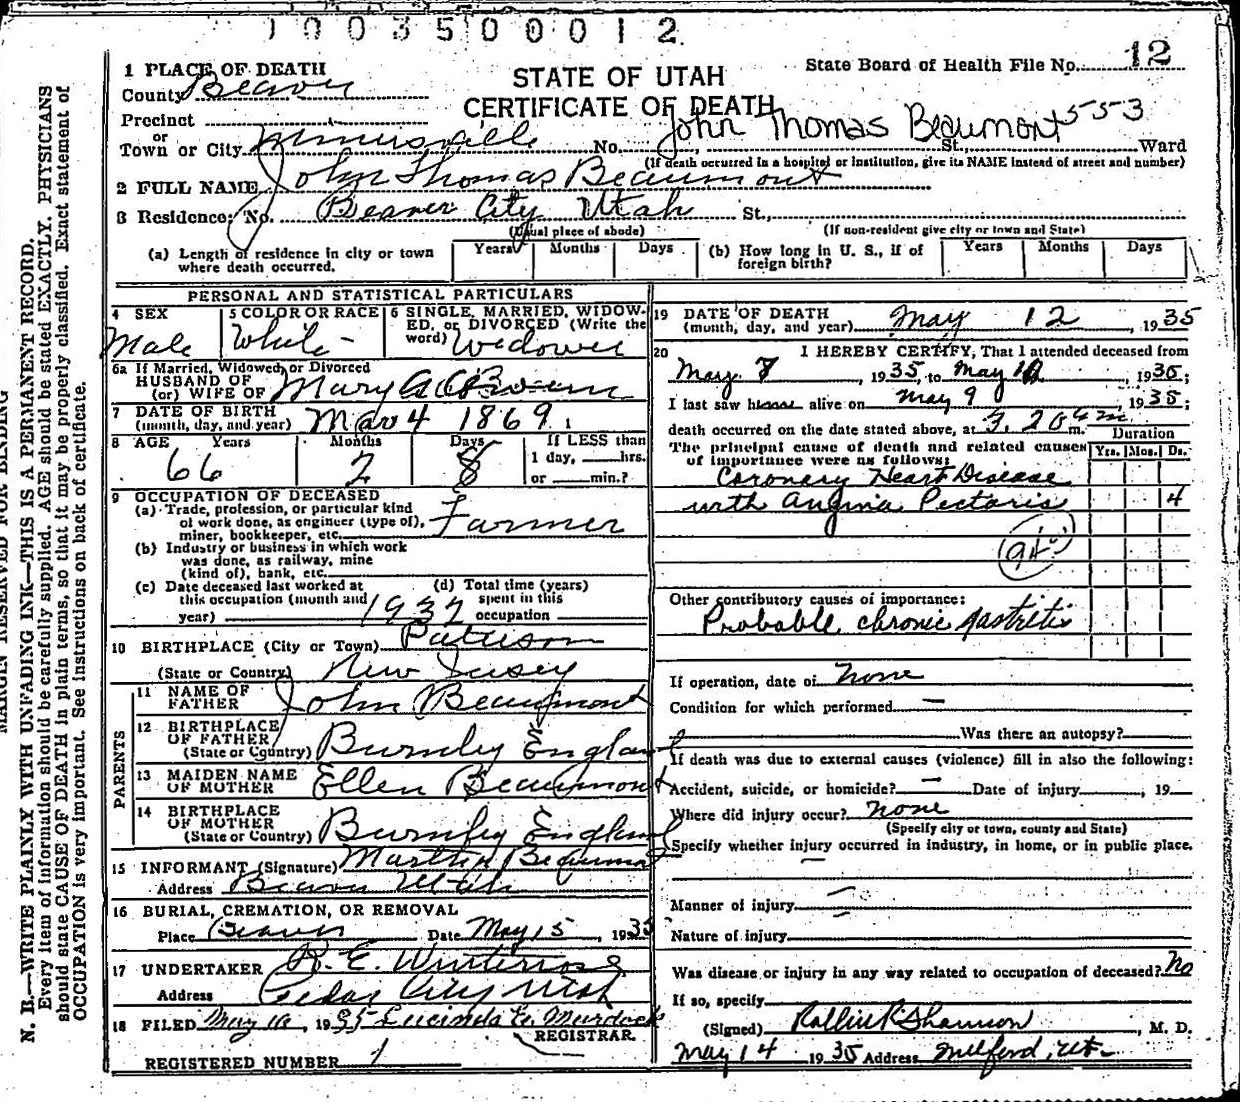 1003500012
12
1 PLACE OF DEATH
County Beaver
STATE OF UTAH
CERTIFICATE OF DEATH
State Board of Health File No. 12
Precinct
or
Town or City Minersville No. St., Ward
John Thomas Beaumont 553
(If death occurred in a hospital or institution, give its NAME instead of street and number)
2 FULL NAME John Thomas Beaumont
3 Residence: No. Beaver City Utah St.,
(Usual place of abode) (If non-resident give city or town and State)
(a) Length of residence in city or town where death occurred. Years Months Days (b) How long in U. S., if of foreign birth? Years Months Days
PERSONAL AND STATISTICAL PARTICULARS
4 SEX
Male
5 COLOR OR RACE
White
6 SINGLE, MARRIED, WIDOW-
ED, or DIVORCED (Write the
word) Widower
6a If Married, Widowed, or Divorced
HUSBAND OF
(or) WIFE OF Mary
7 DATE OF BIRTH
(month, day, and year) Mar 4 1869
8 AGE Years Months Days If LESS than
66 2 8 1 day, hrs.
or min.?
9 OCCUPATION OF DECEASED
(a) Trade, profession, or particular kind
of work done, as engineer (type of),
miner, bookkeeper, etc. Farmer
(b) Industry or business in which work
was done, as railway, mine
(kind of), bank, etc.
(c) Date deceased last worked at
this occupation (month and
year) 1932
(d) Total time (years)
spent in this
occupation
10 BIRTHPLACE (City or Town) Paterson
(State or Country) New Jersey
PARENTS
11 NAME OF
FATHER John Beaumont
12 BIRTHPLACE
OF FATHER
(State or Country) Burnley England
13 MAIDEN NAME
OF MOTHER Ellen Beaumont
14 BIRTHPLACE
OF MOTHER
(State or Country) Burnley England
15 INFORMANT (Signature) Beaumont
Address Beaver Utah
16 BURIAL, CREMATION, OR REMOVAL
Place Beaver Date May 15, 1935
17 UNDERTAKER R. E. Winterrose
Address Cedar City Utah
18 FILED May 16, 1935 Lucinda E. Murdock
REGISTRAR.
REGISTERED NUMBER 1
19 DATE OF DEATH
(month, day, and year) May 12, 1935
20 I HEREBY CERTIFY, That I attended deceased from
May 7, 1935, to May, 1935;
I last saw h alive on May 9, 1935;
death occurred on the date stated above, at 3.20 a m.
The principal cause of death and related causes
of importance were as follows:
Duration
Yrs. Mos. Ds.
Coronary Heart Disease
with Angina Pectoris 4
Other contributory causes of importance:
Probable chronic gastritis
If operation, date of none
Condition for which performed —
Was there an autopsy?
If death was due to external causes (violence) fill in also the following:
Accident, suicide, or homicide? — Date of injury, 19
Where did injury occur? none
(Specify city or town, county and State)
Specify whether injury occurred in industry, in home, or in public place.
Manner of injury
Nature of injury
Was disease or injury in any way related to occupation of deceased? No
If so, specify
(Signed) Rollin R. Shannon, M. D.
May 14 1935 Address Milford, Ut-
MARGIN RESERVED FOR BINDING
N. B.—WRITE PLAINLY WITH UNFADING INK—THIS IS A PERMANENT RECORD.
Every item of information should be carefully supplied. AGE should be stated EXACTLY. PHYSICIANS
should state CAUSE OF DEATH in plain terms, so that it may be properly classified. Exact statement of
OCCUPATION is very important. See instructions on back of certificate.